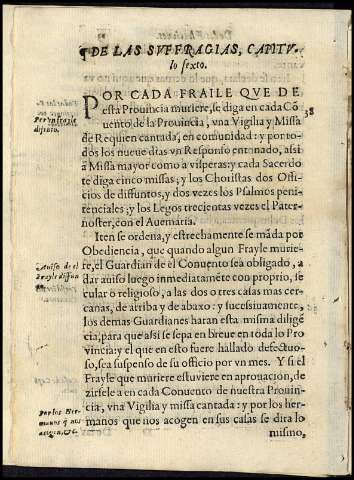 ¶DE LAS SVFFRAGIAS, CAPITV-
lo sexto.
POR CADA FRAILE QVE DE
esta Prouincia muriere, se diga en cada Cõ
uento de la Prouincia, vna Vigilia y Missa
de Requien cantada, en comunidad: y por to-
dos los nueue dias vn Responso entonado, assi
a Missa mayor como a visperas: y cada Sacerdo
te diga cinco missas; y los Choristas dos Offi-
cios de diffuntos, y dos vezes los Psalmos peni-
tenciales; y los Legos trecientas vezes el Pater-
noster, con el Auemaria.
Iten se ordena, y estrechamente se mãda por
Obediencia, que quando algun Frayle murie-
re, el Guardian de el Conuento sea obligado, a
dar auiso luego inmediatamẽte con proprio, se
cular o religioso, a las dos o tres casas mas cer-
canas, de arriba y de abaxo: y sucessiuamente,
los demas Guardianes haran esta misma diligẽ
cia, para que assi se sepa en breue en toda lo Pro
uincia: y el que en esto fuere hallado defectuo-
so, sea suspenso de su officio por vn mes. Y si el
Frayle que muriere estuviere en aprouacion, de
zirsele a en cada Conuento de nuestra Prouin-
cia, vna Vigilia y missa cantada: y por los her-
manos que nos acogen en sus casas se dira lo
mismo,
Por vn frayle
difunto.
38
Auiso de el
frayle difun
to.
Por los Her-
manos q nos
acogen, &c.